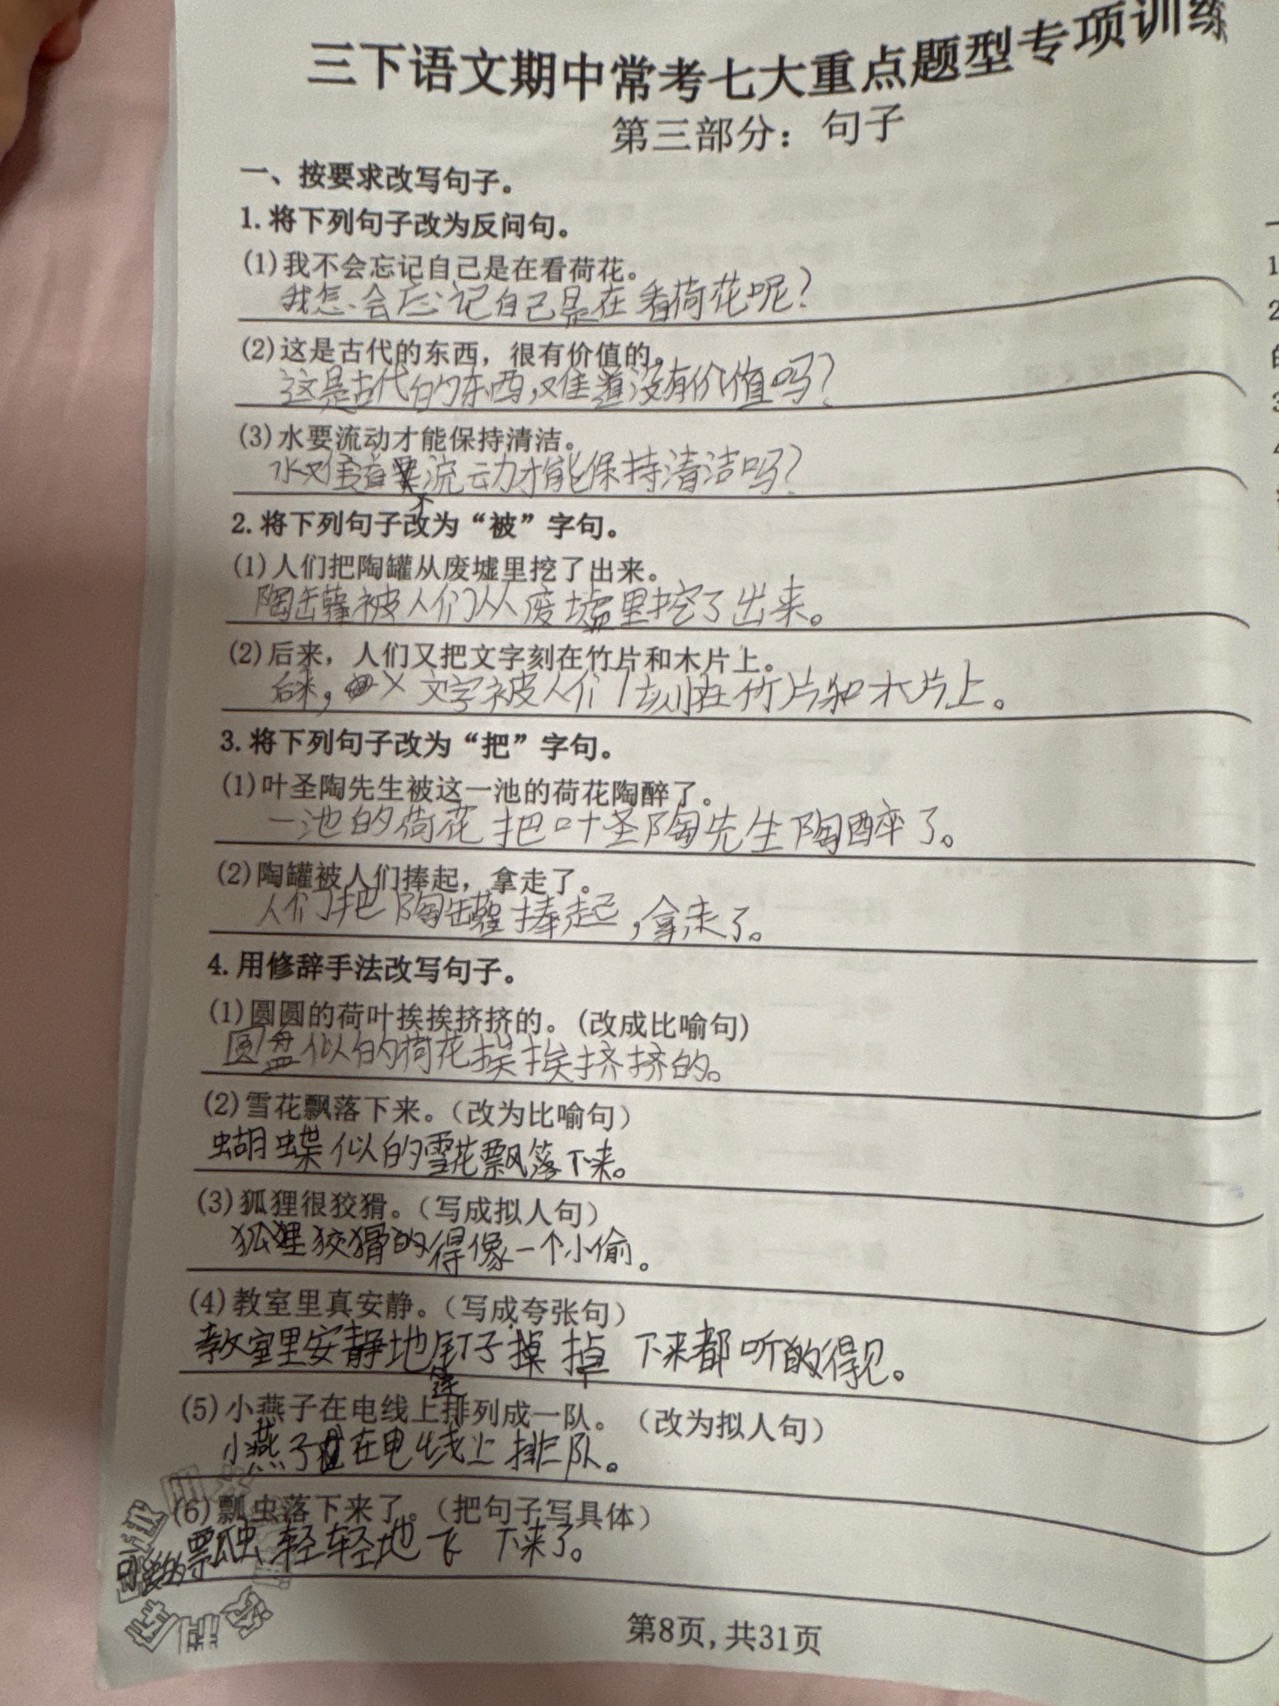 三下语文期中常考七大重点题型专项训练
第三部分：句子
一、按要求改写句子。
1.将下列句子改为反问句。
(1)我不会忘记自己是在看荷花。
我怎会忘记自己是在看荷花呢？
(2)这是古代的东西，很有价值的。
这是古代的东西，难道没有价值吗？
(3)水要流动才能保持清洁。
水难道不要流动才能保持清洁吗？
2.将下列句子改为“被”字句。
(1)人们把陶罐从废墟里挖了出来。
陶罐被人们从废墟里挖了出来。
(2)后来，人们又把文字刻在竹片和木片上。
后来，又文字被人们刻在竹片和木片上。
3.将下列句子改为“把”字句。
(1)叶圣陶先生被这一池的荷花陶醉了。
一池的荷花把叶圣陶先生陶醉了。
(2)陶罐被人们捧起，拿走了。
人们把陶罐捧起，拿走了。
4.用修辞手法改写句子。
(1)圆圆的荷叶挨挨挤挤的。(改成比喻句)
圆盘似的荷花挨挨挤挤的。
(2)雪花飘落下来。（改为比喻句）
蝴蝶似的雪花飘落下来。
(3)狐狸很狡猾。（写成拟人句）
狐狸狡猾的得像一个小偷。
(4)教室里真安静。（写成夸张句）
教室里安静地连钉子掉掉下来都听的得见。
(5)小燕子在电线上排列成一队。（改为拟人句）
小燕子在电线上排队。
(6)瓢虫落下来了。（把句子写具体）
可爱的瓢虫轻轻地飞下来了。
第8页,共31页